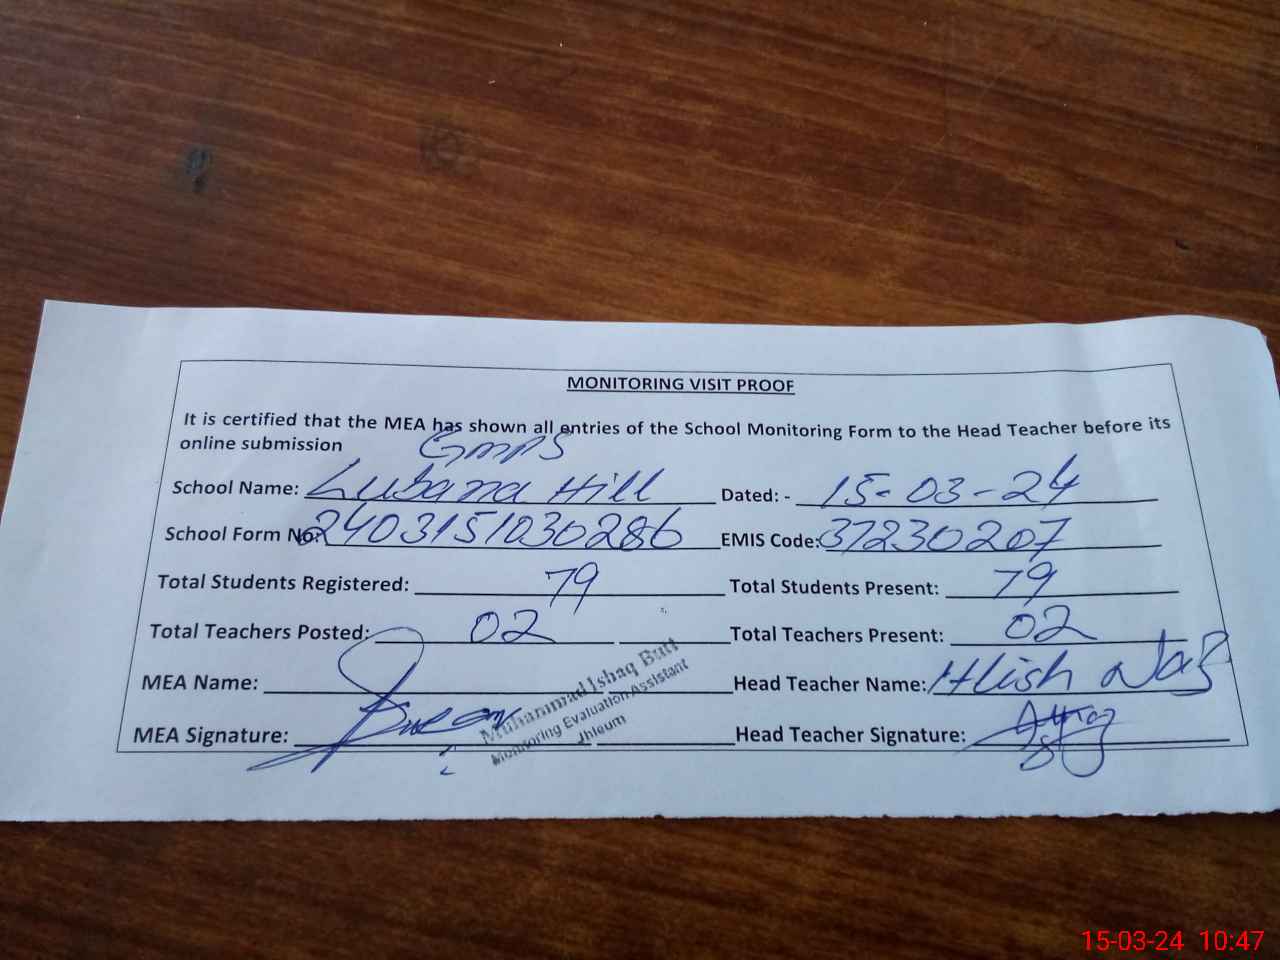 MONITORING VISIT PROOF
It is certified that the MEA has shown all entries of the School Monitoring Form to the Head Teacher before its
online submission
GMPS
School Name: Lubana Hill Dated: - 15-03-24
School Form No: 2403151030286 EMIS Code: 37230207
Total Students Registered: 79 Total Students Present: 79
Total Teachers Posted: 02 Total Teachers Present: 02
MEA Name: Head Teacher Name: Naz
MEA Signature: Head Teacher Signature:
Muhammad Ishaq Butt
Monitoring Evaluation Assistant
Jhleum
15-03-24 10:47